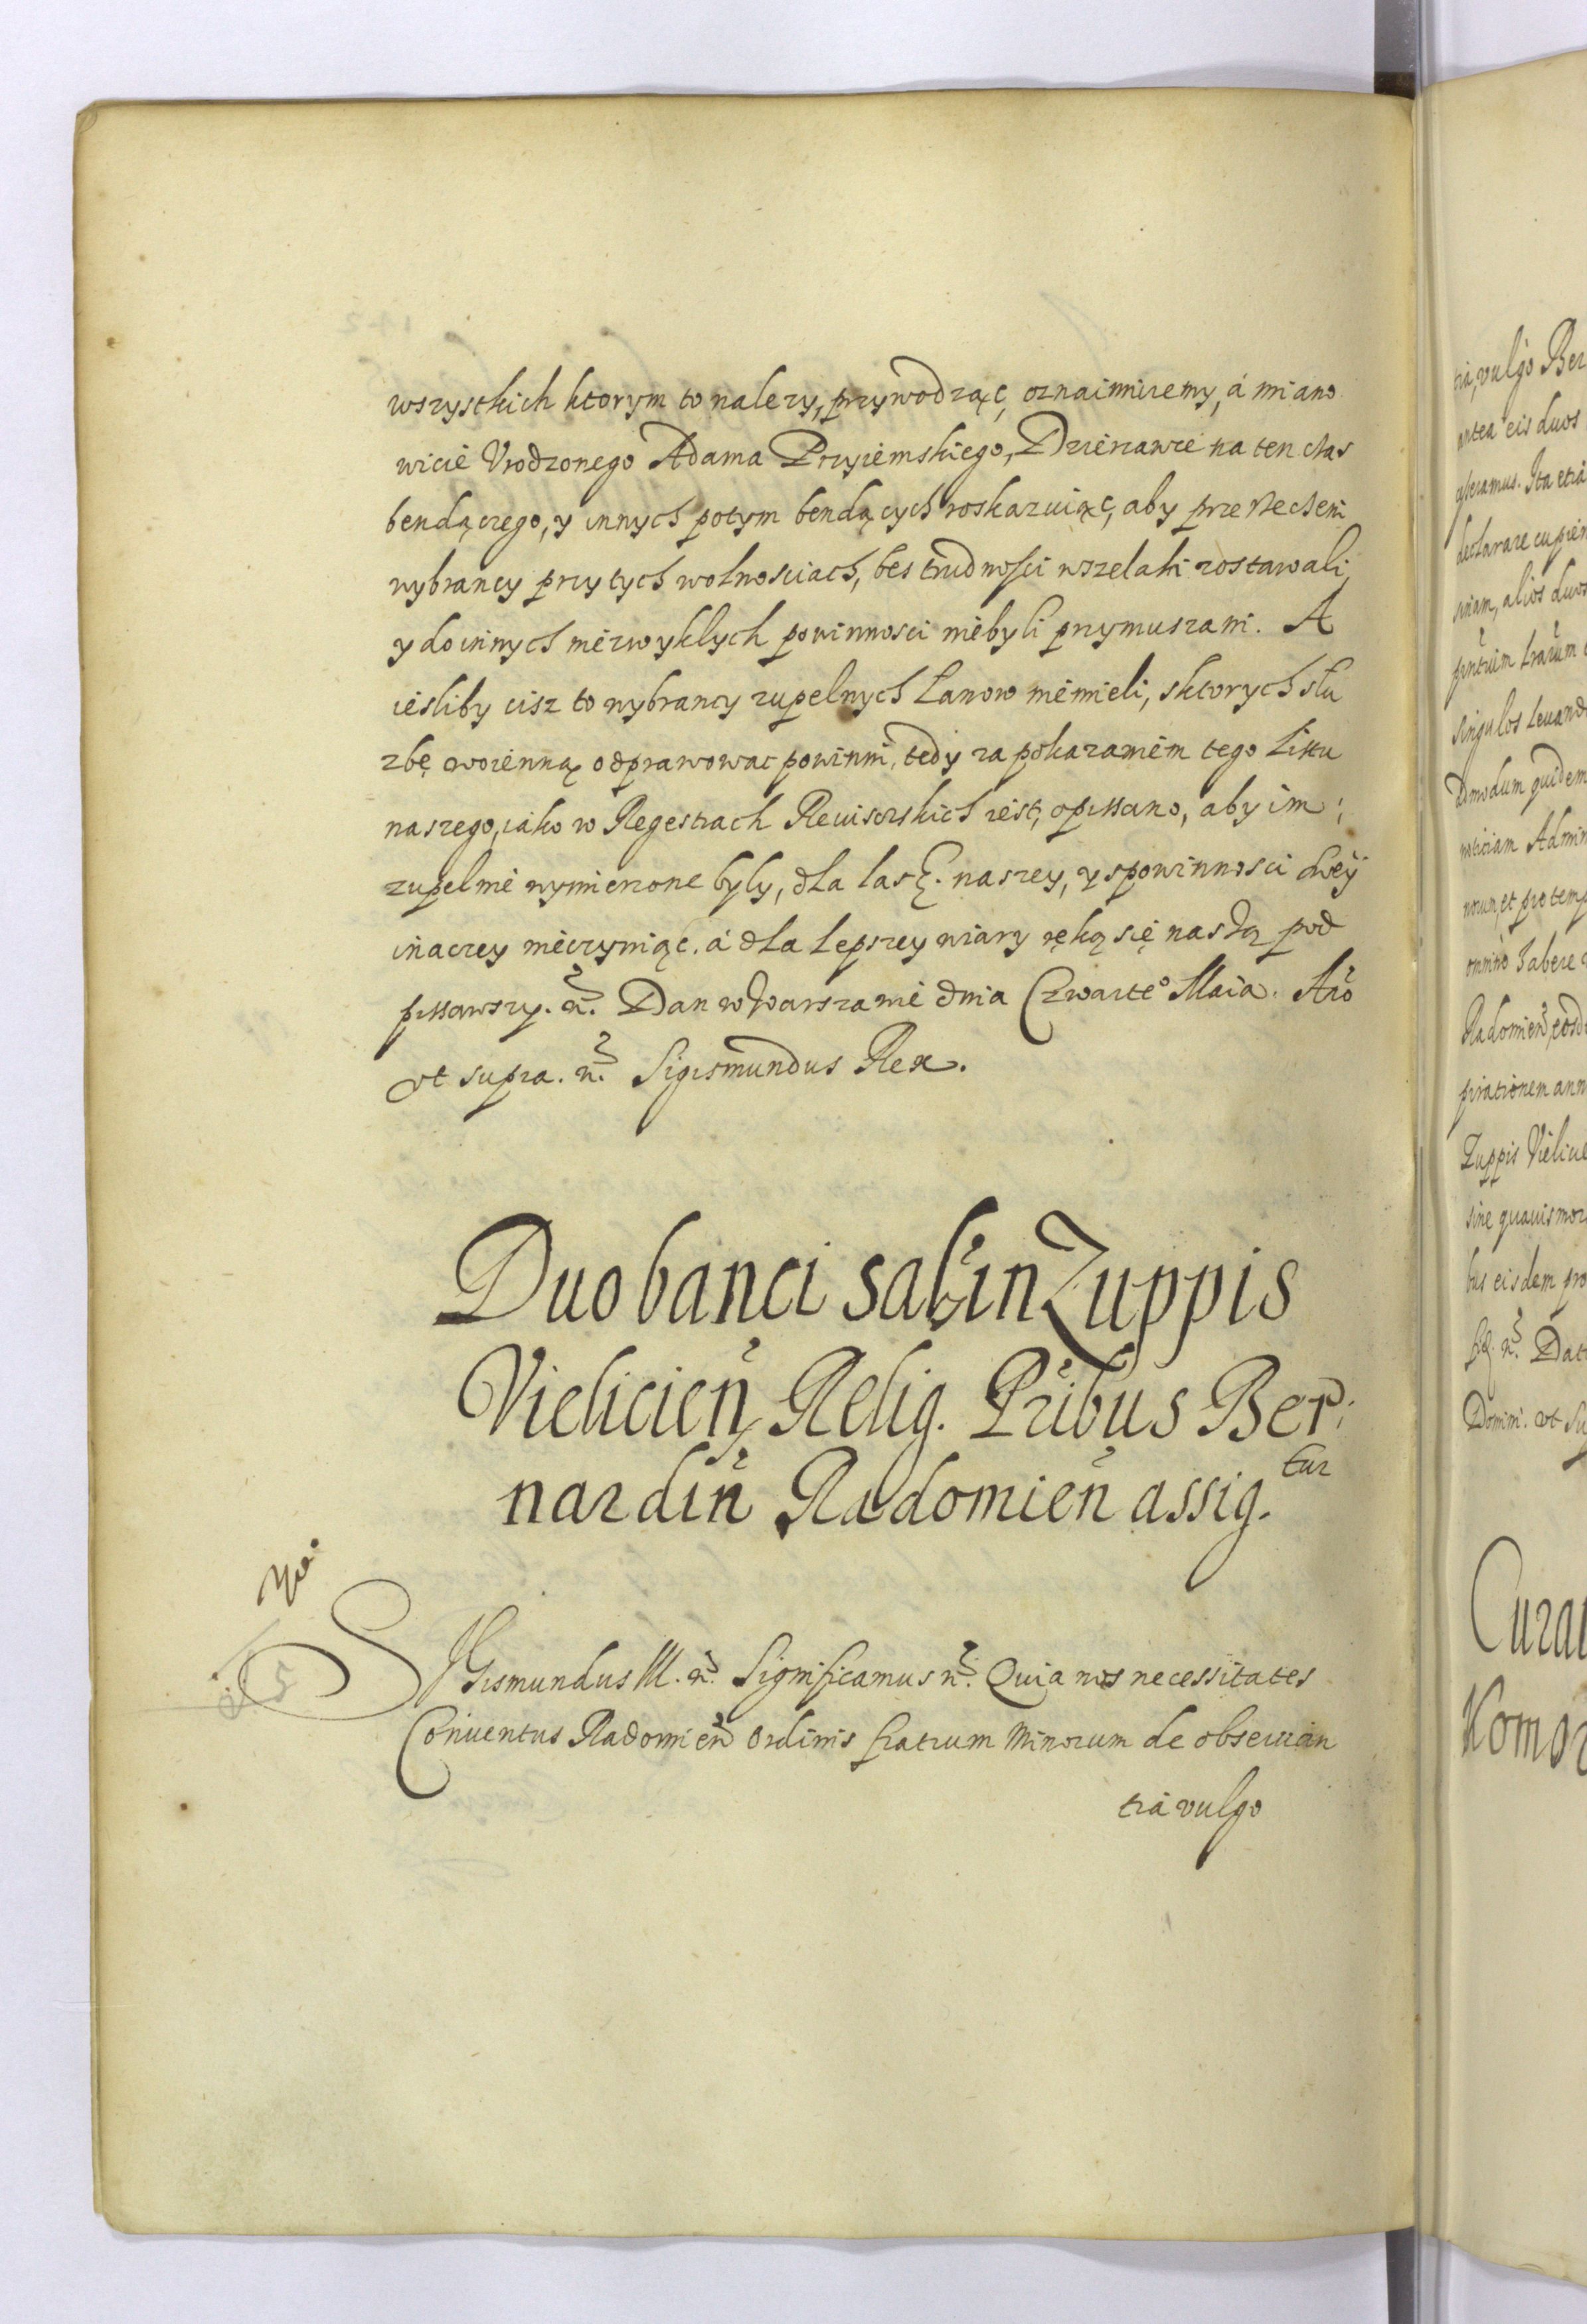 wszystkich ktorym to nalezy, przywodząc, oznaimuiemy, á miano
wicie Vrodzonego Adama Przyiemskiego, Dzierzawce na ten czas
bendączego, y innych potym bendących roskazuiąc, aby przerzeczeni
wybrancy przy tych wolnosciach, bes trudnosci wszelaki zostawali,
y do innych niezwyklych powinnosci niebyli przymuszani. A
iesliby cisz to wybrancy zupelnych Lanow niemieli, sktorych slu
zbę woienną odprawowac powinni, tedy za pokazaniem tego Listu
naszego, iako w Regestrach Reuisorskich iest, opissano, aby im
zupelnie wymierzone byly, dla łaski. naszey, y spowinnosci swey
inaczey nieczyniąc. á dla lepszey wiary ręką się naszą pod
pissawszy. etc. Dan w Warszawie dnia Czwarteo Maia. Año
vt supra. etc. Sigismundus Rex.
Duo banci salis in Zuppis
Vielicien̄ Relig. Pribus Ber
nardin̄ Radomien̄ assig.tur
SIGismundus III. etc. Significamus etc. Quia nos necessitates
Conuentus Radomien̄ Ordinis fratrum Minorum de obseruan
tia vulgo
tia, vulgo Ber
antea eis duos
declarare cupien
alios duos
Singulos
quidem
Admin
Radomien̄
Zuppis Vielicie
sine quauis mor
bus eisdem pro
etc. Dat
Domini. vt Su
Curat
Komor